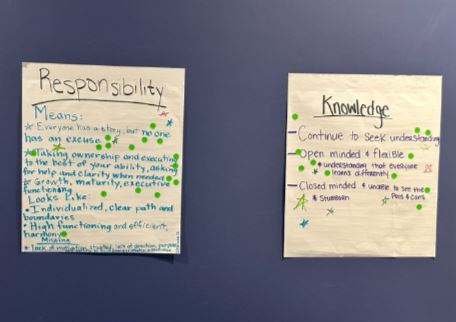 Responsibility
Means:
* Everyone has a story, but no one
has an excuse.
* Taking ownership and executing
to the best of your ability, asking
for help and clarity when needed
Growth, maturity, executive
functioning
Looks Like:
• Individualized, clear path and
boundaries
• High functioning and efficient,
harmony
Missing
* Lack of motivation, lack of direction, purpose
Knowledge
- Continue to seek understanding
- Open minded & flexible
* understanding that everyone
learns differently
- Closed minded & unable to see the
& Stubborn Pros & cons